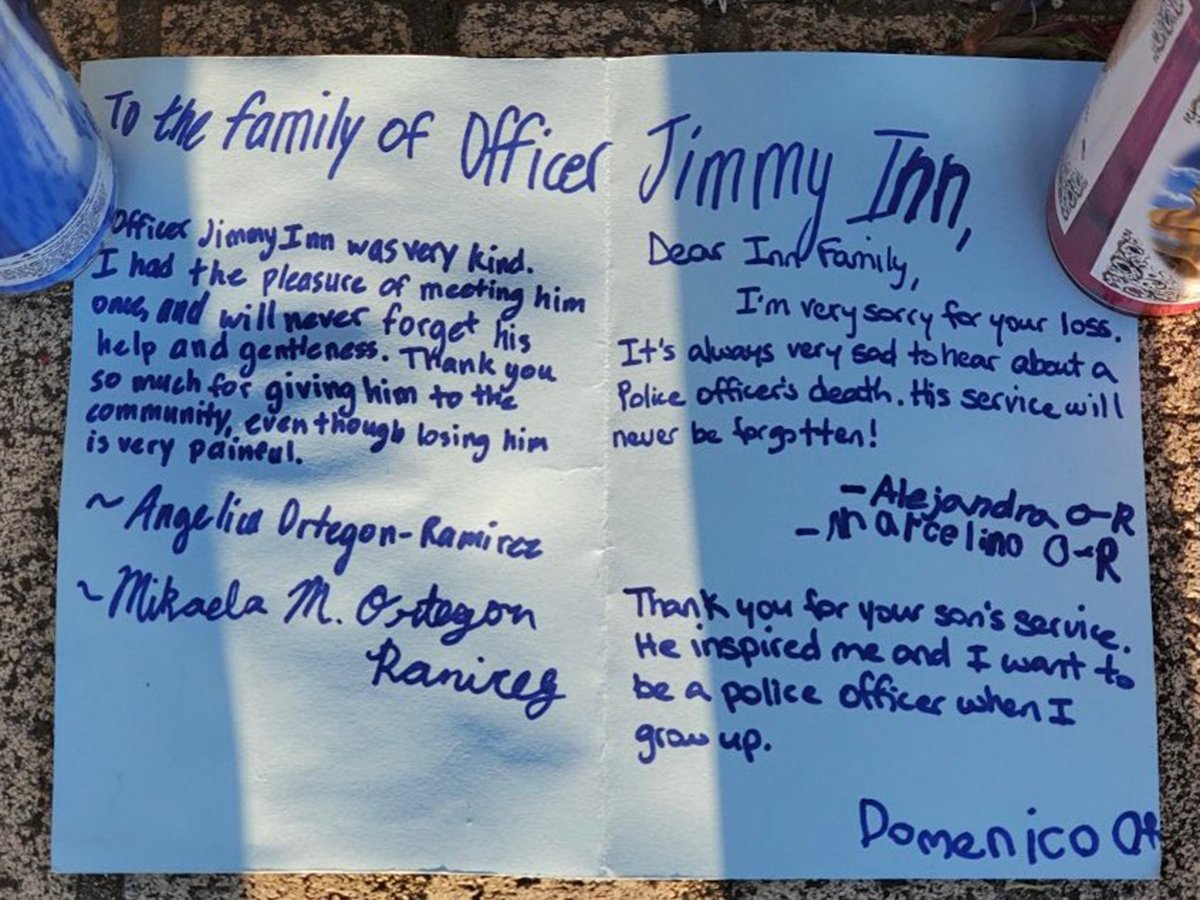 To the family of Officer Jimmy Inn,
Officer Jimmy Inn was very kind.
I had the pleasure of meeting him
once, and will never forget his
help and gentleness. Thank you
so much for giving him to the
community, even though losing him
is very painful.
~ Angelica Ortegon-Ramirez
~ Mikaela M. Ortegon
Ramirez
Dear Inn Family,
I'm very sorry for your loss.
It's always very sad to hear about a
Police officer's death. His service will
never be forgotten!
- Alejandra O-R
- Marcelino O-R
Thank you for your son's service.
He inspired me and I want to
be a police officer when I
grow up.
Domenico